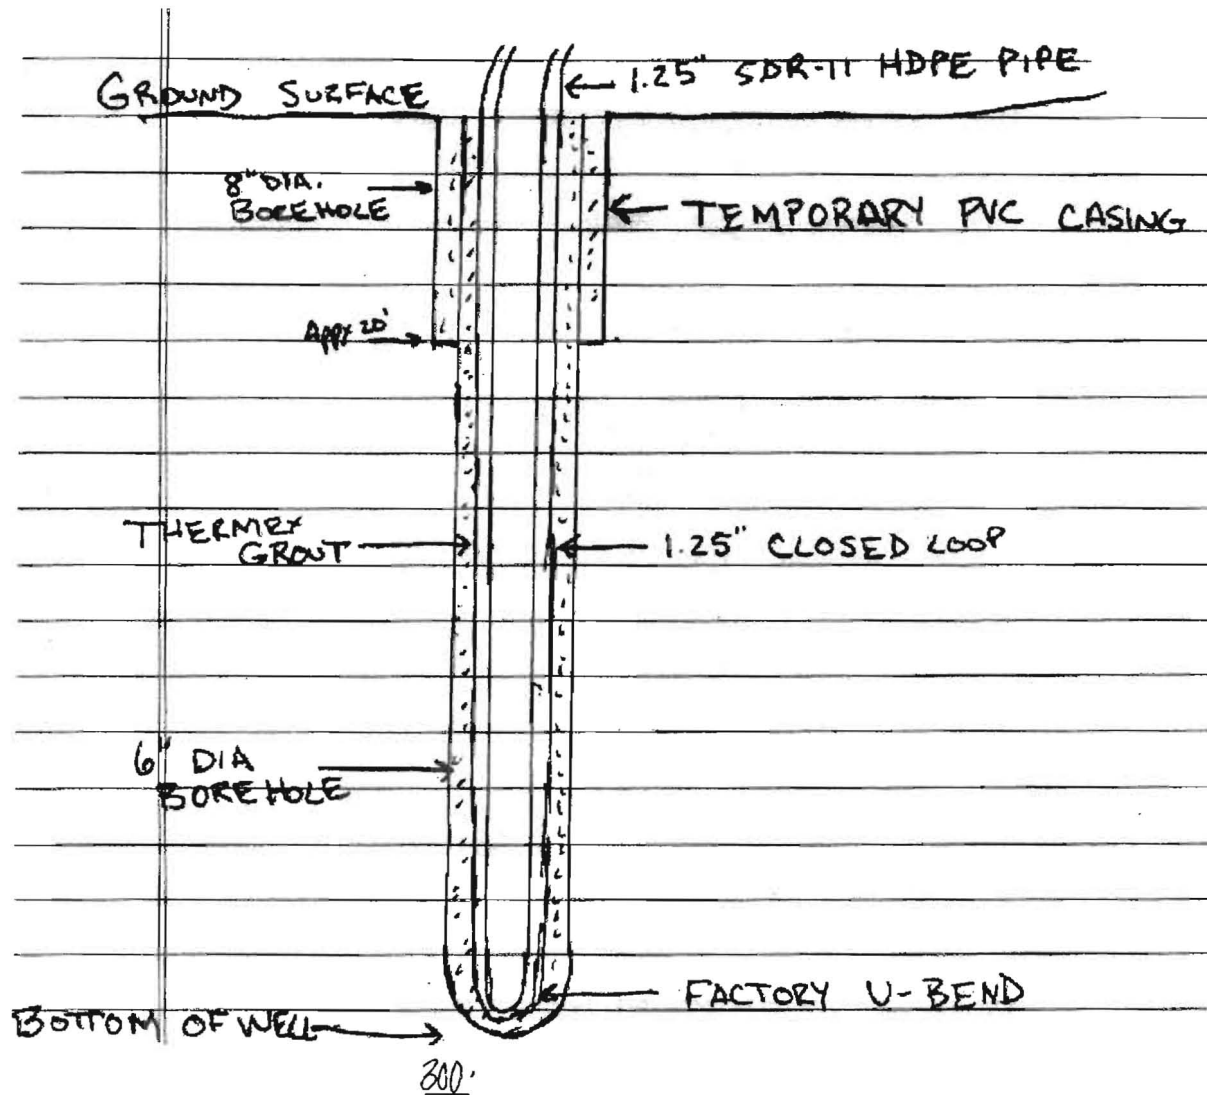 1.25" SDR-11 HDPE PIPE
GROUND SURFACE
8" DIA.
BOREHOLE
TEMPORARY PVC CASING
Appx 20'
THERMEX
GROUT
1.25" CLOSED LOOP
6" DIA
BOREHOLE
FACTORY U-BEND
BOTTOM OF WELL
300'